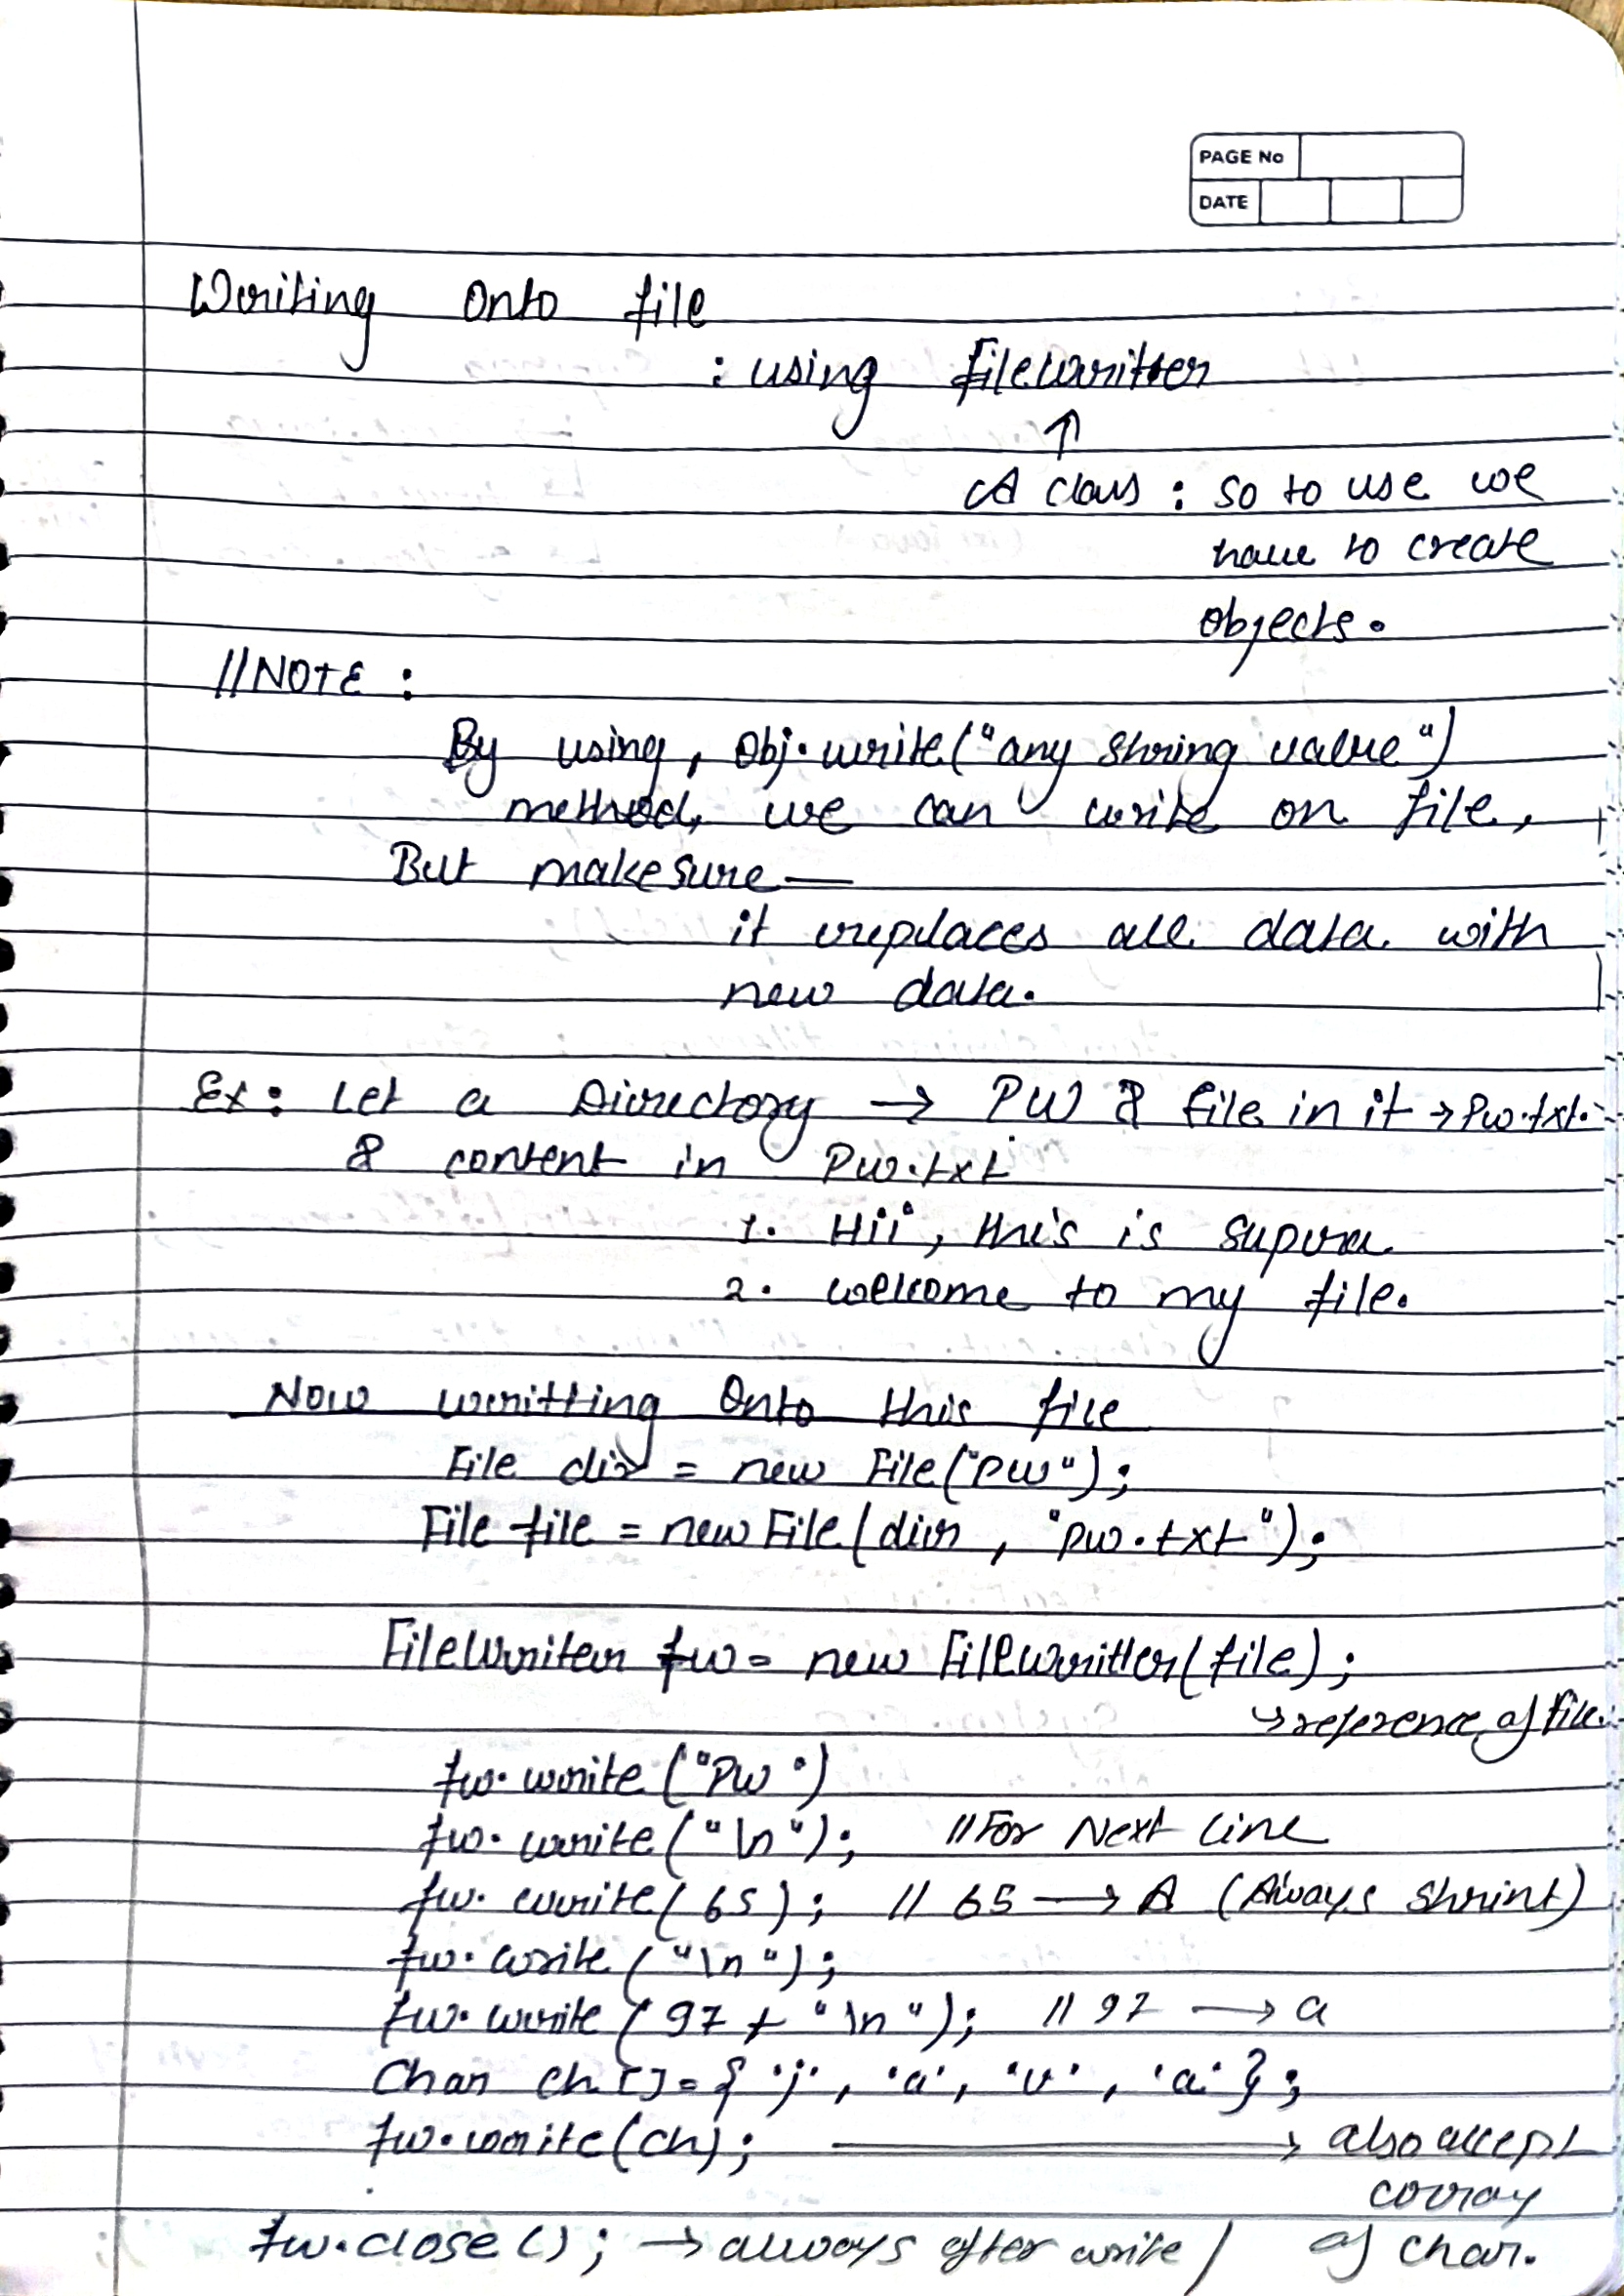 PAGE No
DATE
Writing Onto file
: using filewritter
↑
A class : so to use we
have to create
objects.
//NOTE :
By using, Obj.write("any string value")
method, we can write on file,
But makesure —
it replaces all data with
new data.
Ex: Let a Directory → PW & file in it → Pw.txt.
& content in Pw.txt
1. Hii, this is Supra
2. welcome to my file.
Now writting Onto this file
File dir = new File("PW");
File file = new File(dir, "pw.txt");
FileWriter fw = new FileWritter(file);
↳ reference of file.
fw.write("Pw")
fw.write("\n"); //For Next line
fw.write(65); // 65 → A (Always String)
fw.write("\n");
fw.write(97 + "\n"); // 97 → a
Char ch[]={'j', 'a', 'v', 'a'};
fw.write(ch); → also accept
array
fw.close(); → always after write / of char.